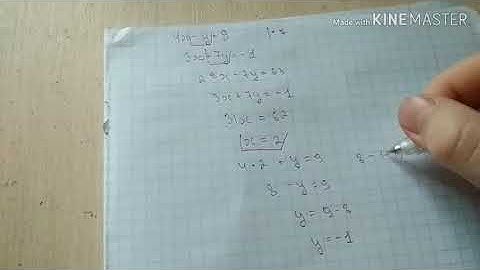 Made with KINEMASTER
4x - y = 9
3x + 7y = -1
28x - 7y = 63
3x + 7y = -1
31x = 62
x = 2
4 • 2 - y = 9
8 - y = 9
y = 9 - 8
y = -1